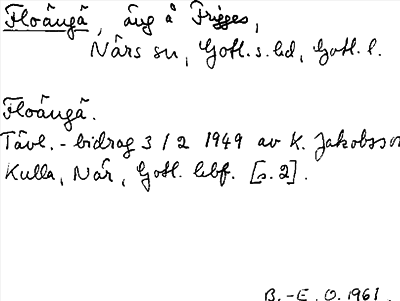 Floängä, äng å Frigges,
Närs sn, Gotl. s. hd, Gotl. l.
Floängä.
Tävl.-bidrag 3/2 1949 av K. Jakobsson
Kulla, När, Gotl. hbf. [s. 2].
B.-E. O. 1961